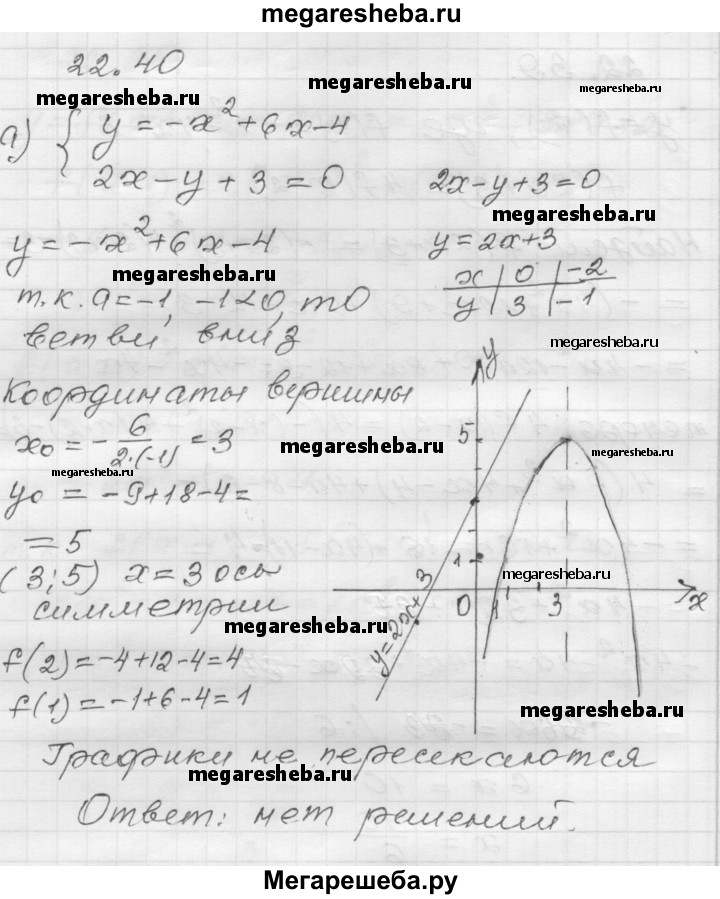 megaresheba.ru
22.40
megaresheba.ru
megaresheba.ru
а) { y = -x² + 6x - 4
2x - y + 3 = 0
2x - y + 3 = 0
megaresheba.ru
y = -x² + 6x - 4
y = 2x + 3
megaresheba.ru
x | 0 | -2
y | 3 | -1
т.к. a = -1, -1 < 0, то
ветви вниз
megaresheba.ru
Координаты вершины
x₀ = - 6/2·(-1) = 3
megaresheba.ru
megaresheba.ru
megaresheba.ru
y₀ = -9 + 18 - 4 =
= 5
(3; 5) x = 3 ось
симметрии
megaresheba.ru
f(2) = -4 + 12 - 4 = 4
f(1) = -1 + 6 - 4 = 1
y
5
1
megaresheba.ru
0 1 3 x
y = 2x + 3
megaresheba.ru
Графики не пересекаются
megaresheba.ru
Ответ: нет решений.
Мегарешеба.ру